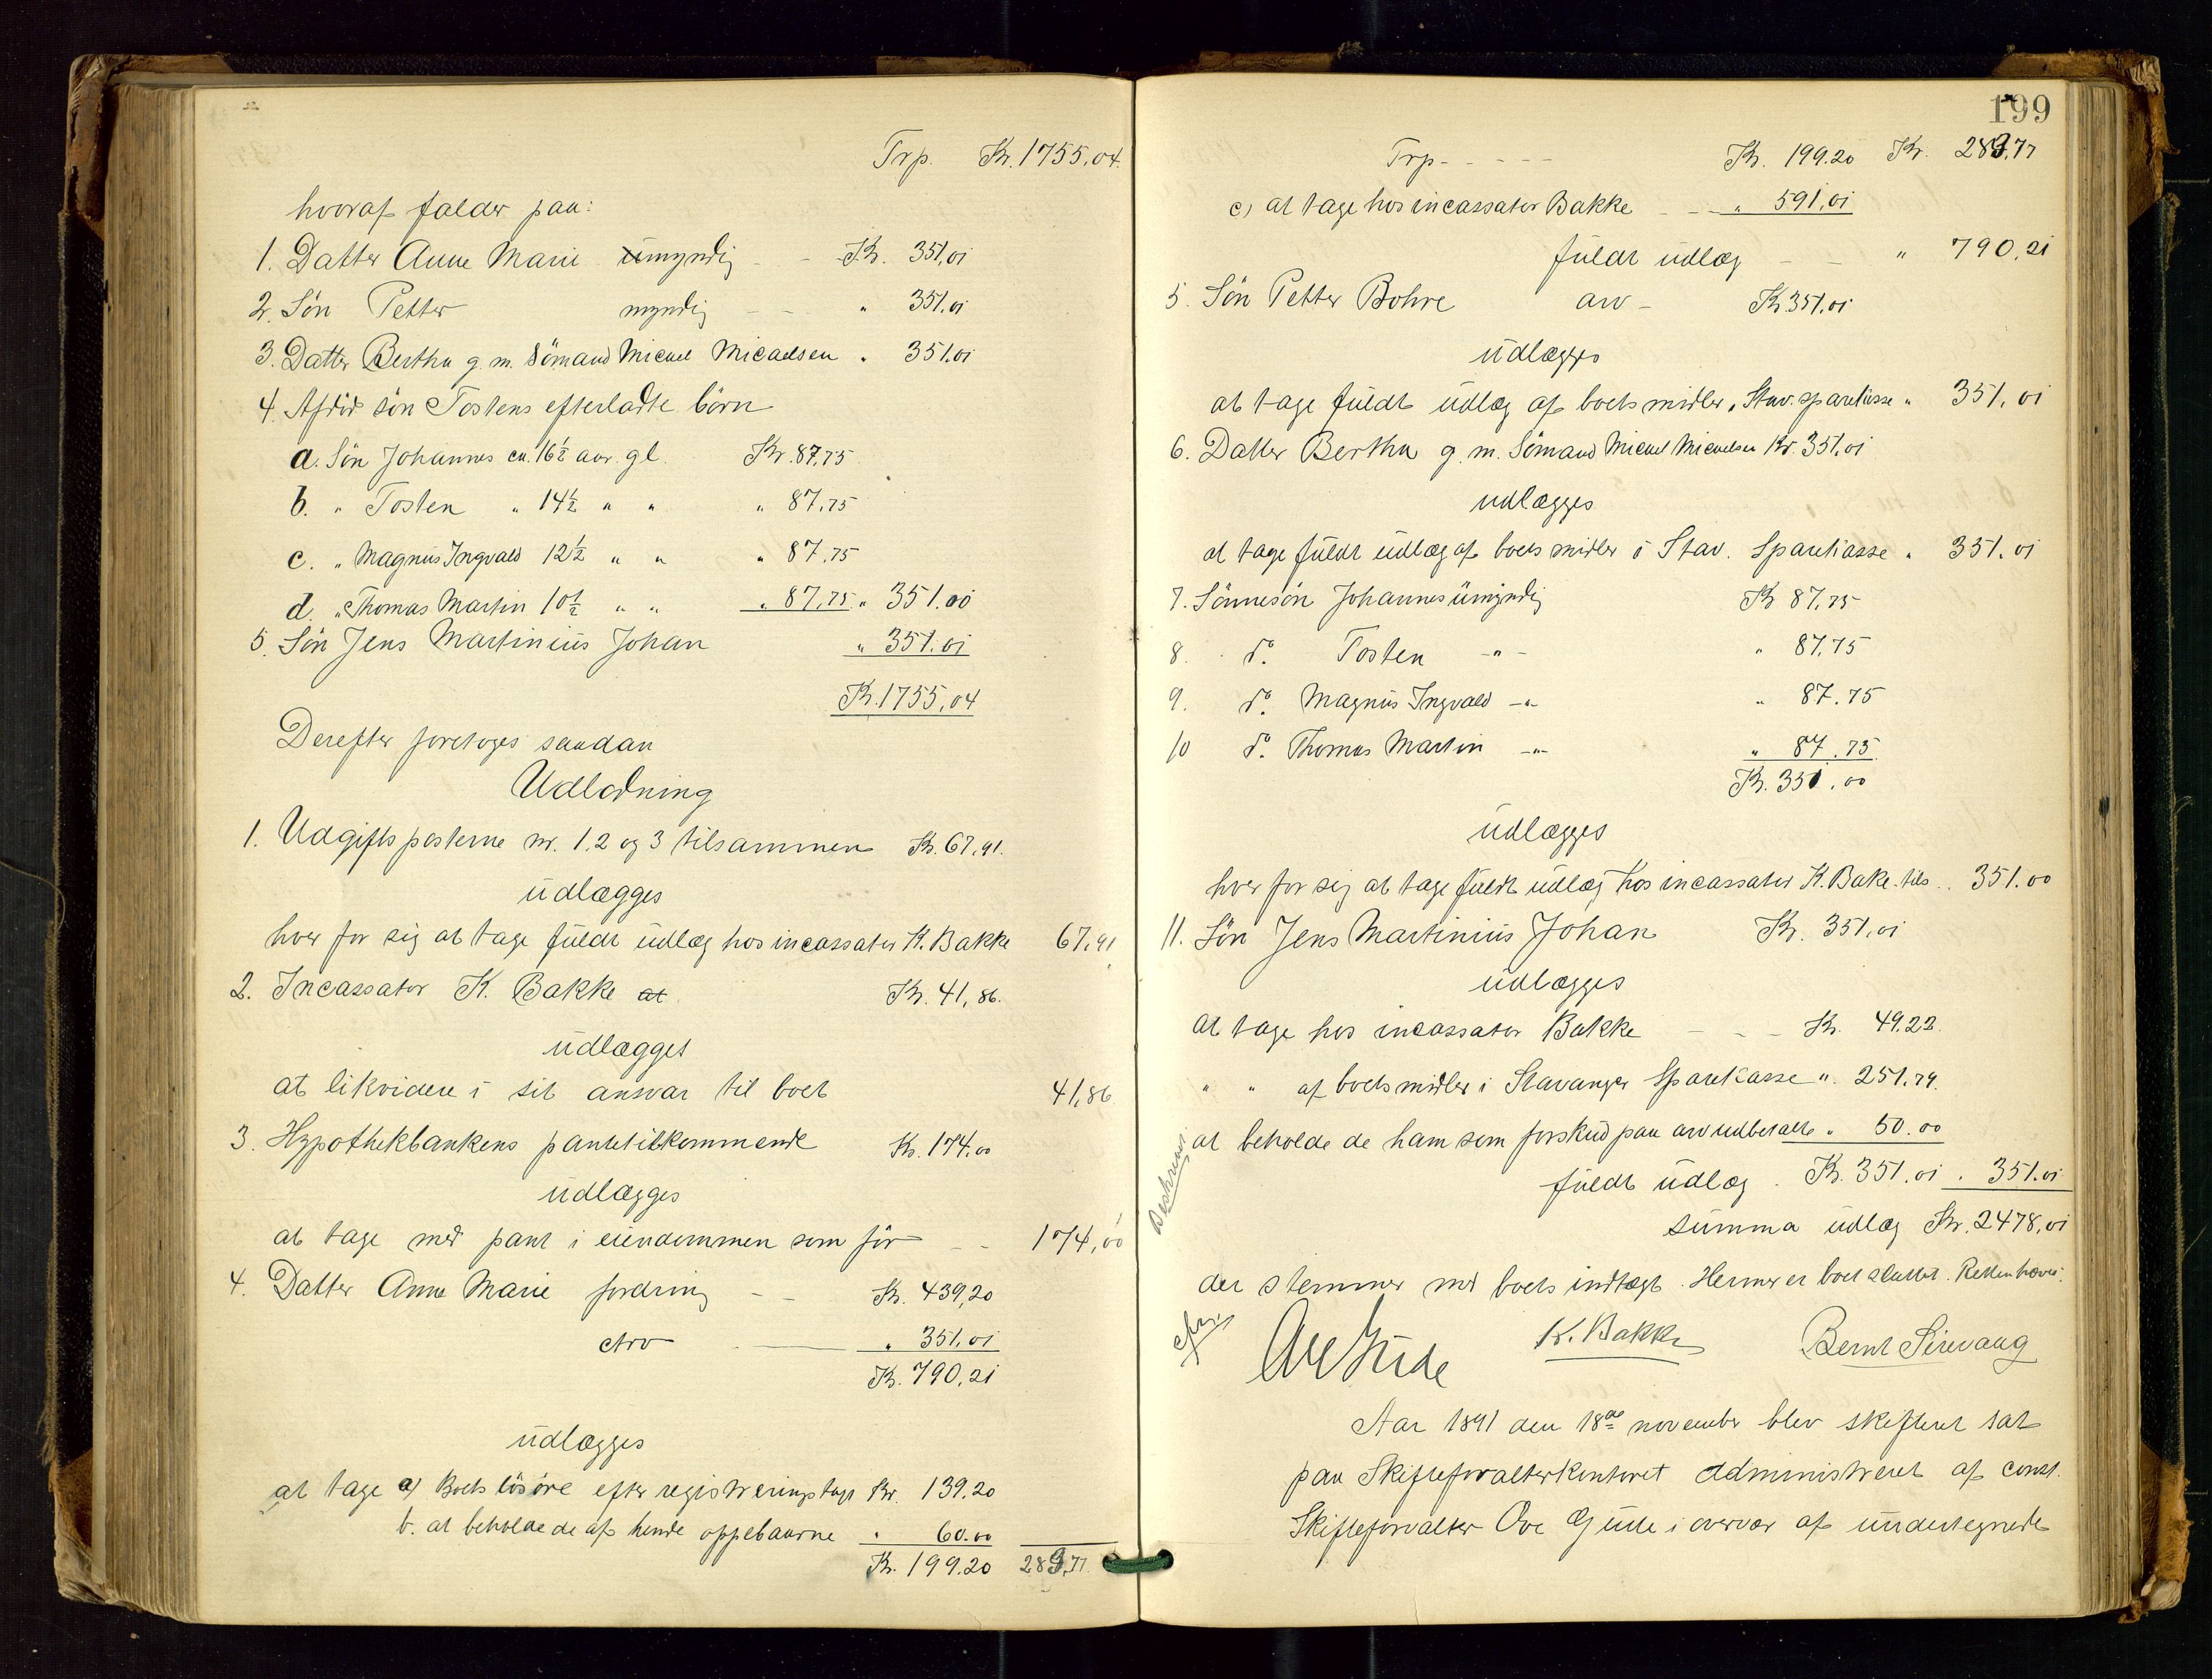 Trp. Kr. 1755,04.
hvoraf falder paa:
1. Datter Anne Marie umyndig - - Kr. 351,01
2. Søn Petter myndig - - " 351.01
3. Datter Bertha g. m. Sömand Micael Micaelsen " 351.01
4. Afdöd sön Tostens efterladte börn
a. Søn Johannes ca. 16½ aar. gl. Kr. 87,75
b. " Tosten " 14½ " " " 87,75
c. " Magnus Ingvald 12½ " " " 87.75
d. " Thomas Martin 10½ " " " 87,75 " 351.00
5. Søn Jens Martinius Johan " 351.01
Kr. 1755,04
Derefter foretoges saadan
Udlodning
1. Udgifts posterne nr. 1, 2 og 3 tilsammen Kr. 67,91.
udlægges
hver for sig at tage fuldt udlæg hos incassator K. Bakke 67,91
2. Incassator K. Bakke at Kr. 41,86.
udlægget
at likvidere i sit ansvar til boet 41,86
3. Hypothekbankens pantetilkommende Kr. 174.00
udlægges
at tage med pant i eiendommen som før - - 174,00
4. Datter Anne Marie fordring - - Kr. 439,20
Arv " 351,01
Kr. 790,21
udlægges
at tage a) Boets lösöre efter registreringstaxt Kr. 139.20
b. at beholde de af hende oppebaarne " 60.00
Kr. 199.20 283,77.
199
Trp - - - - - Kr. 199.20 Kr. 283,77
c) at tage hos incassator Bakke - - " 591,01
fuldt udlæg - - " 790,21
5. Søn Petter Bohre arv - Kr. 351,01
udlægges
at tage fuldt udlæg af boets midler i Stav. sparekasse " 351,01
6. Datter Bertha g. m. Sömand Micael Micaelsen Kr. 351,01
udlægges
at tage fuldt udlæg af boets midler i Stav. Sparekasse " 351.01
7. Sönnesön Johannes umyndig Kr 87,75
8. do. Tosten -"- " 87,75
9. do. Magnus Ingvald -"- " 87.75
10 do. Thomas Martin -"- " 87.75
Kr. 351.00
udlægges
hver for sig at tage fuldt udlæg hos incassator K. Bake. tils. " 351.00
11. Søn Jens Martinius Johan Kr. 351,01
udlægges
at tage hos incassator Bakke - - - Kr. 49.22.
" " af boets midler i Stavanger Sparekasse " 251.79.
at beholde de ham som forskud paa arv udbetalte " 50.00
fuldt udlæg . Kr. 351.01 " 351.01
Summa udlæg Kr. 2478,01
Beskreven
der stemmer med boets indtægt. Hermed er boet sluttet. Retten hævet.
Ove Gude K. Bakke Bernt Sirevaag
Aar 1891 den 18de november blev skifteret sat
paa Skifteforvalterkontoret administreret af const.
Skifteforvalter Ove Gude i overvær af undertegnede